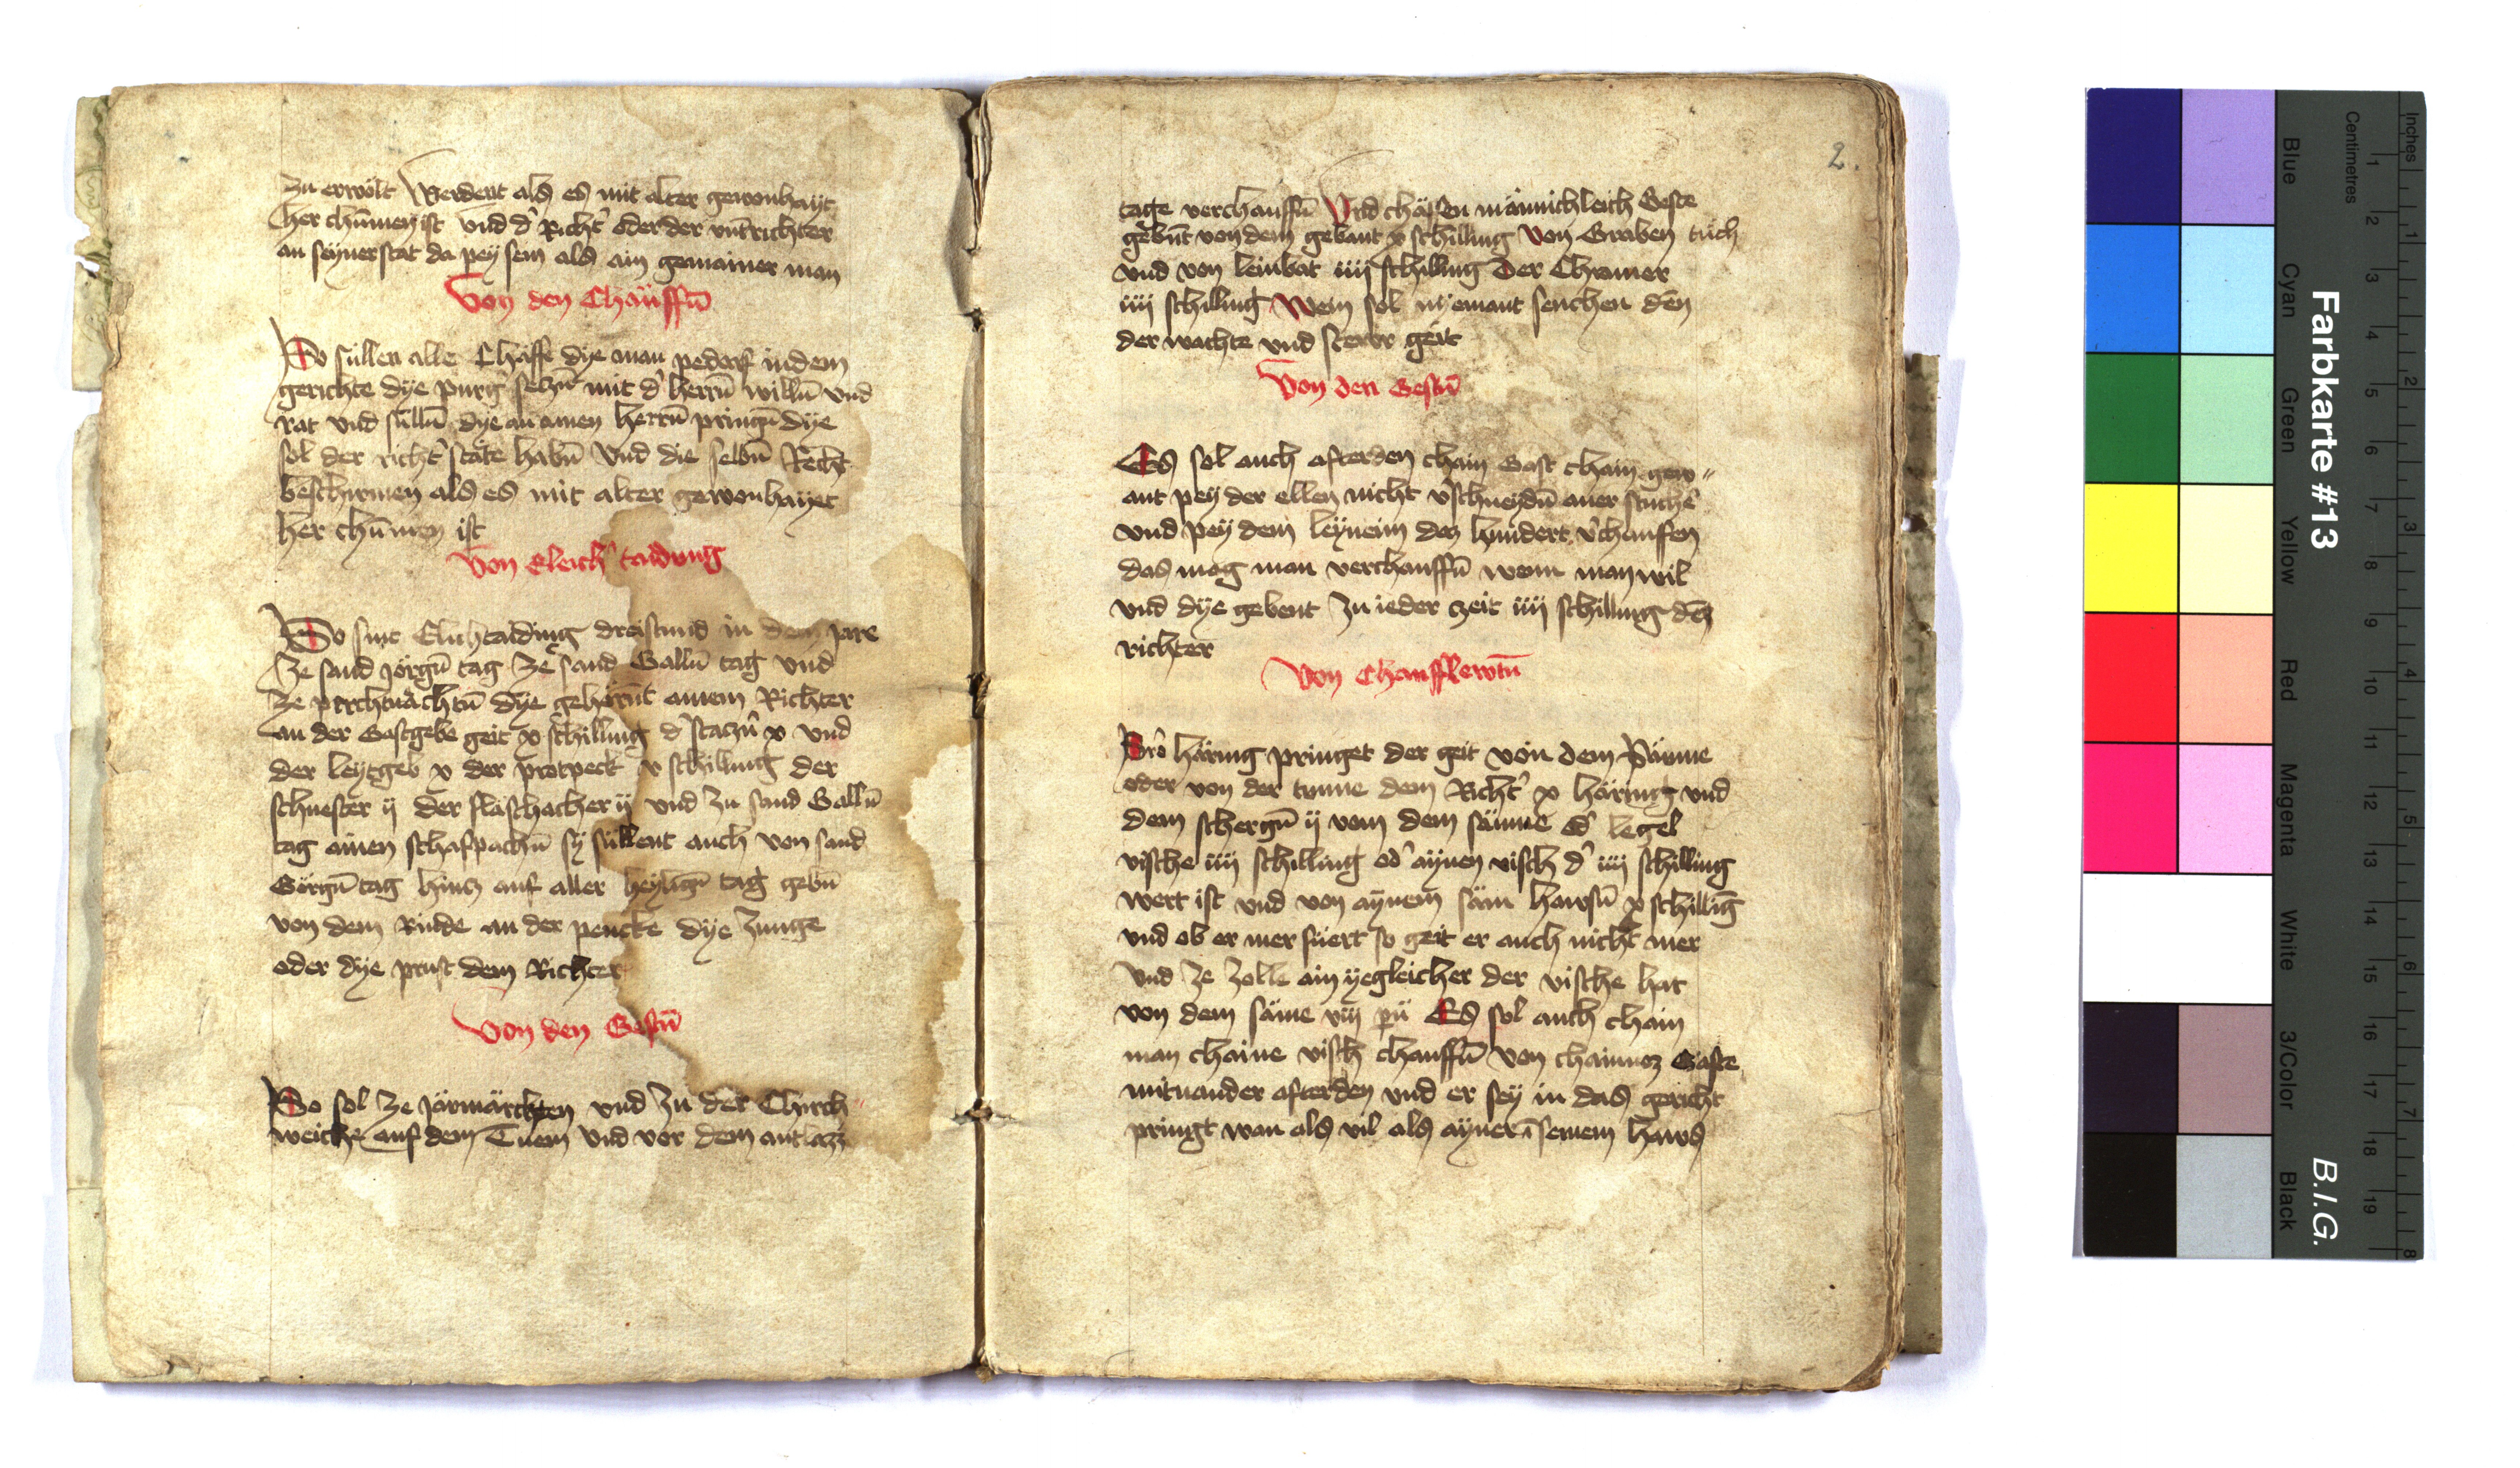 zu erwölt Werdent als es mit alter gewonhayt
her chūmen ist vnd d' Richt' oder der vnt'richter
an seyner stat da pey sein als ain gemainer man
Von den Chäuffn̄
So süllen alle Chäffe dye man pedorf in dem
gerichte dye purg' seczn̄ mit d' herrn̄ willn̄ vnd
rat vnd sülln̄ dye an ainen herrn̄ pringn̄ dye
sol der richt' stäte habn̄ Vnd die selbn̄ Recht
beschirmen als es mit alter gewonhayt
her chūmen ist
Von Eleich taidung
So sint Elichtaiding dreistund in dem jare
Ze sand Jörgn̄ tag Ze sand Galln̄ tag vnd
ze perchtnächtn̄ dye gehörn̄t ainem Richter
an der Gastgebe geit x schilling d' staczn̄ x vnd
der leytgeb x der protpeck x schilling der
schuester ij der fläschacker ij vnd zu sand Galln̄
tag ainen schafpachn̄ sy süllent auch von sand
Görgn̄ tag hincz auf aller heylign̄ tag gebn̄
von dem Rinde an der pencke dye zunge
oder dye prust dem Richter
Von den Gestn̄
So sol ze jarmärckten vnd zu der Chirch
weiche auf dem Tuem vnd vor dem antlazz
2.
tage verchauffn̄ Vnd chäffen männichleich Geste
gebn̄t von dem gebant x schilling Von Graben tuch
vnd von leinbat iiij schilling Der Chramer
iiij schilling Wein sol nyemant senchen den
der wachte vnd stewr geit
Von den Gestn̄
Es sol auch afterden chain Gast chain gew"
ant pey der ellen nicht v'schneydn̄ aver stuche
vnd pey dem leynein dez hundert v'chauffen
das mag man verchauffn̄ wenn man wil
vnd dye gebent zu ieder czeit iiij schilling dez
richter
Von Chaufflewtn̄
Wer häring pringet der geit von dem Säume
oder von der tunne dem Richt' x häring vnd
dem schergn̄ ij vom dem säume od' legel
vische iiij schilling od' aynen visch d' iiij schilling
wert ist vnd von aynem säm hawsn̄ x schilliḡ
vnd ob er mer füert so geit er auch nicht mer
Vnd ze zolle ain yegleicher der vische hat
von dem säme viij Es sol auch chain
man chaine visch chauffn̄ von chainnoz Gaste
mitnander afterden vnd er sey in das gericht
pringt wan als vil als ayner ī seinem haws
Farbkarte #13
B.I.G.
Inches
Centimetres
1 2 3 4 5 6 7 8 9 10 11 12 13 14 15 16 17 18 19
1 2 3 4 5 6 7 8
Blue
Cyan
Green
Yellow
Red
Magenta
White
3/Color
Black